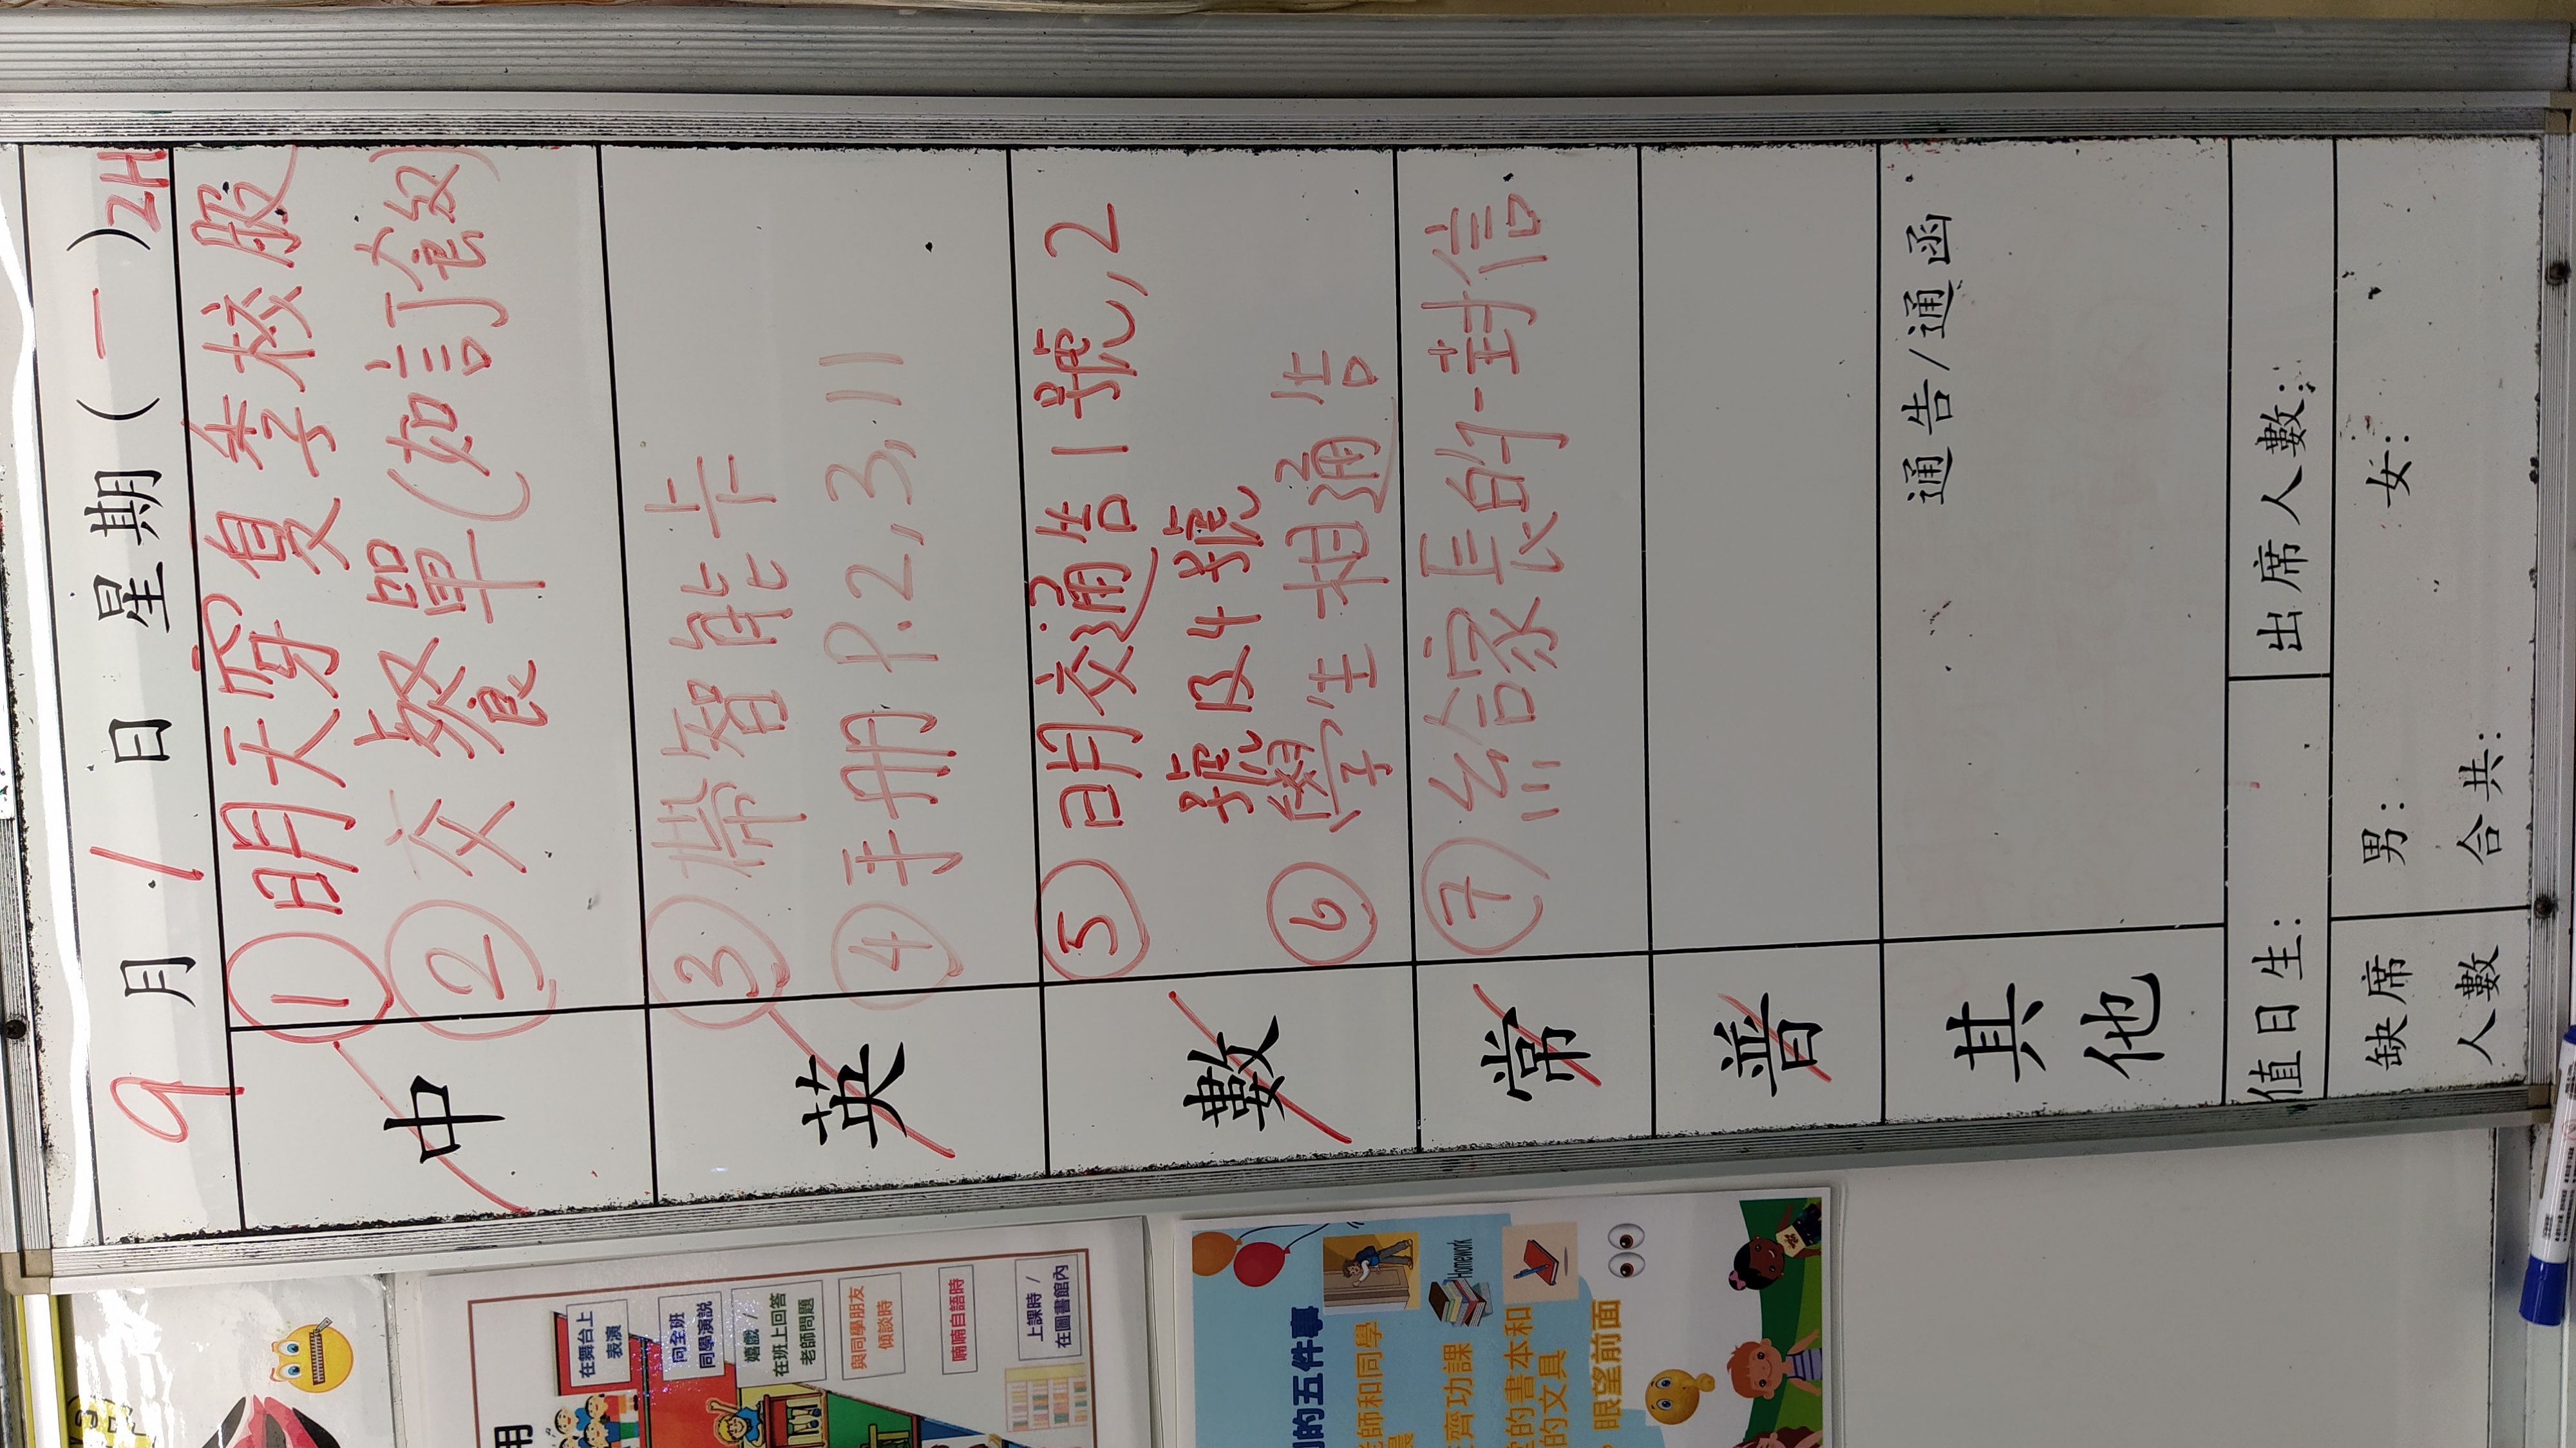 9月1日 星期(一) 2H
中
①明天穿夏季校服
②交餐單(如訂飯)
英
③帶智能卡
④手冊 P.2,3,11
數
⑤明交通告1號,2
號及4號
⑥學生相通告
常
⑦給家長的一封信
普
其他
通告/通函
值日生:
出席人數:
缺席
人數
男:
女:
合共:
用
在舞台上
表演
向全班
同學演說
嬉戲 /
在班上回答
老師問題
與同學朋友
傾談時
喃喃自語時
上課時 /
在圖書館內
的五件事
老師和同學
Homework
齊功課
的書本和
的文具
眼望前面